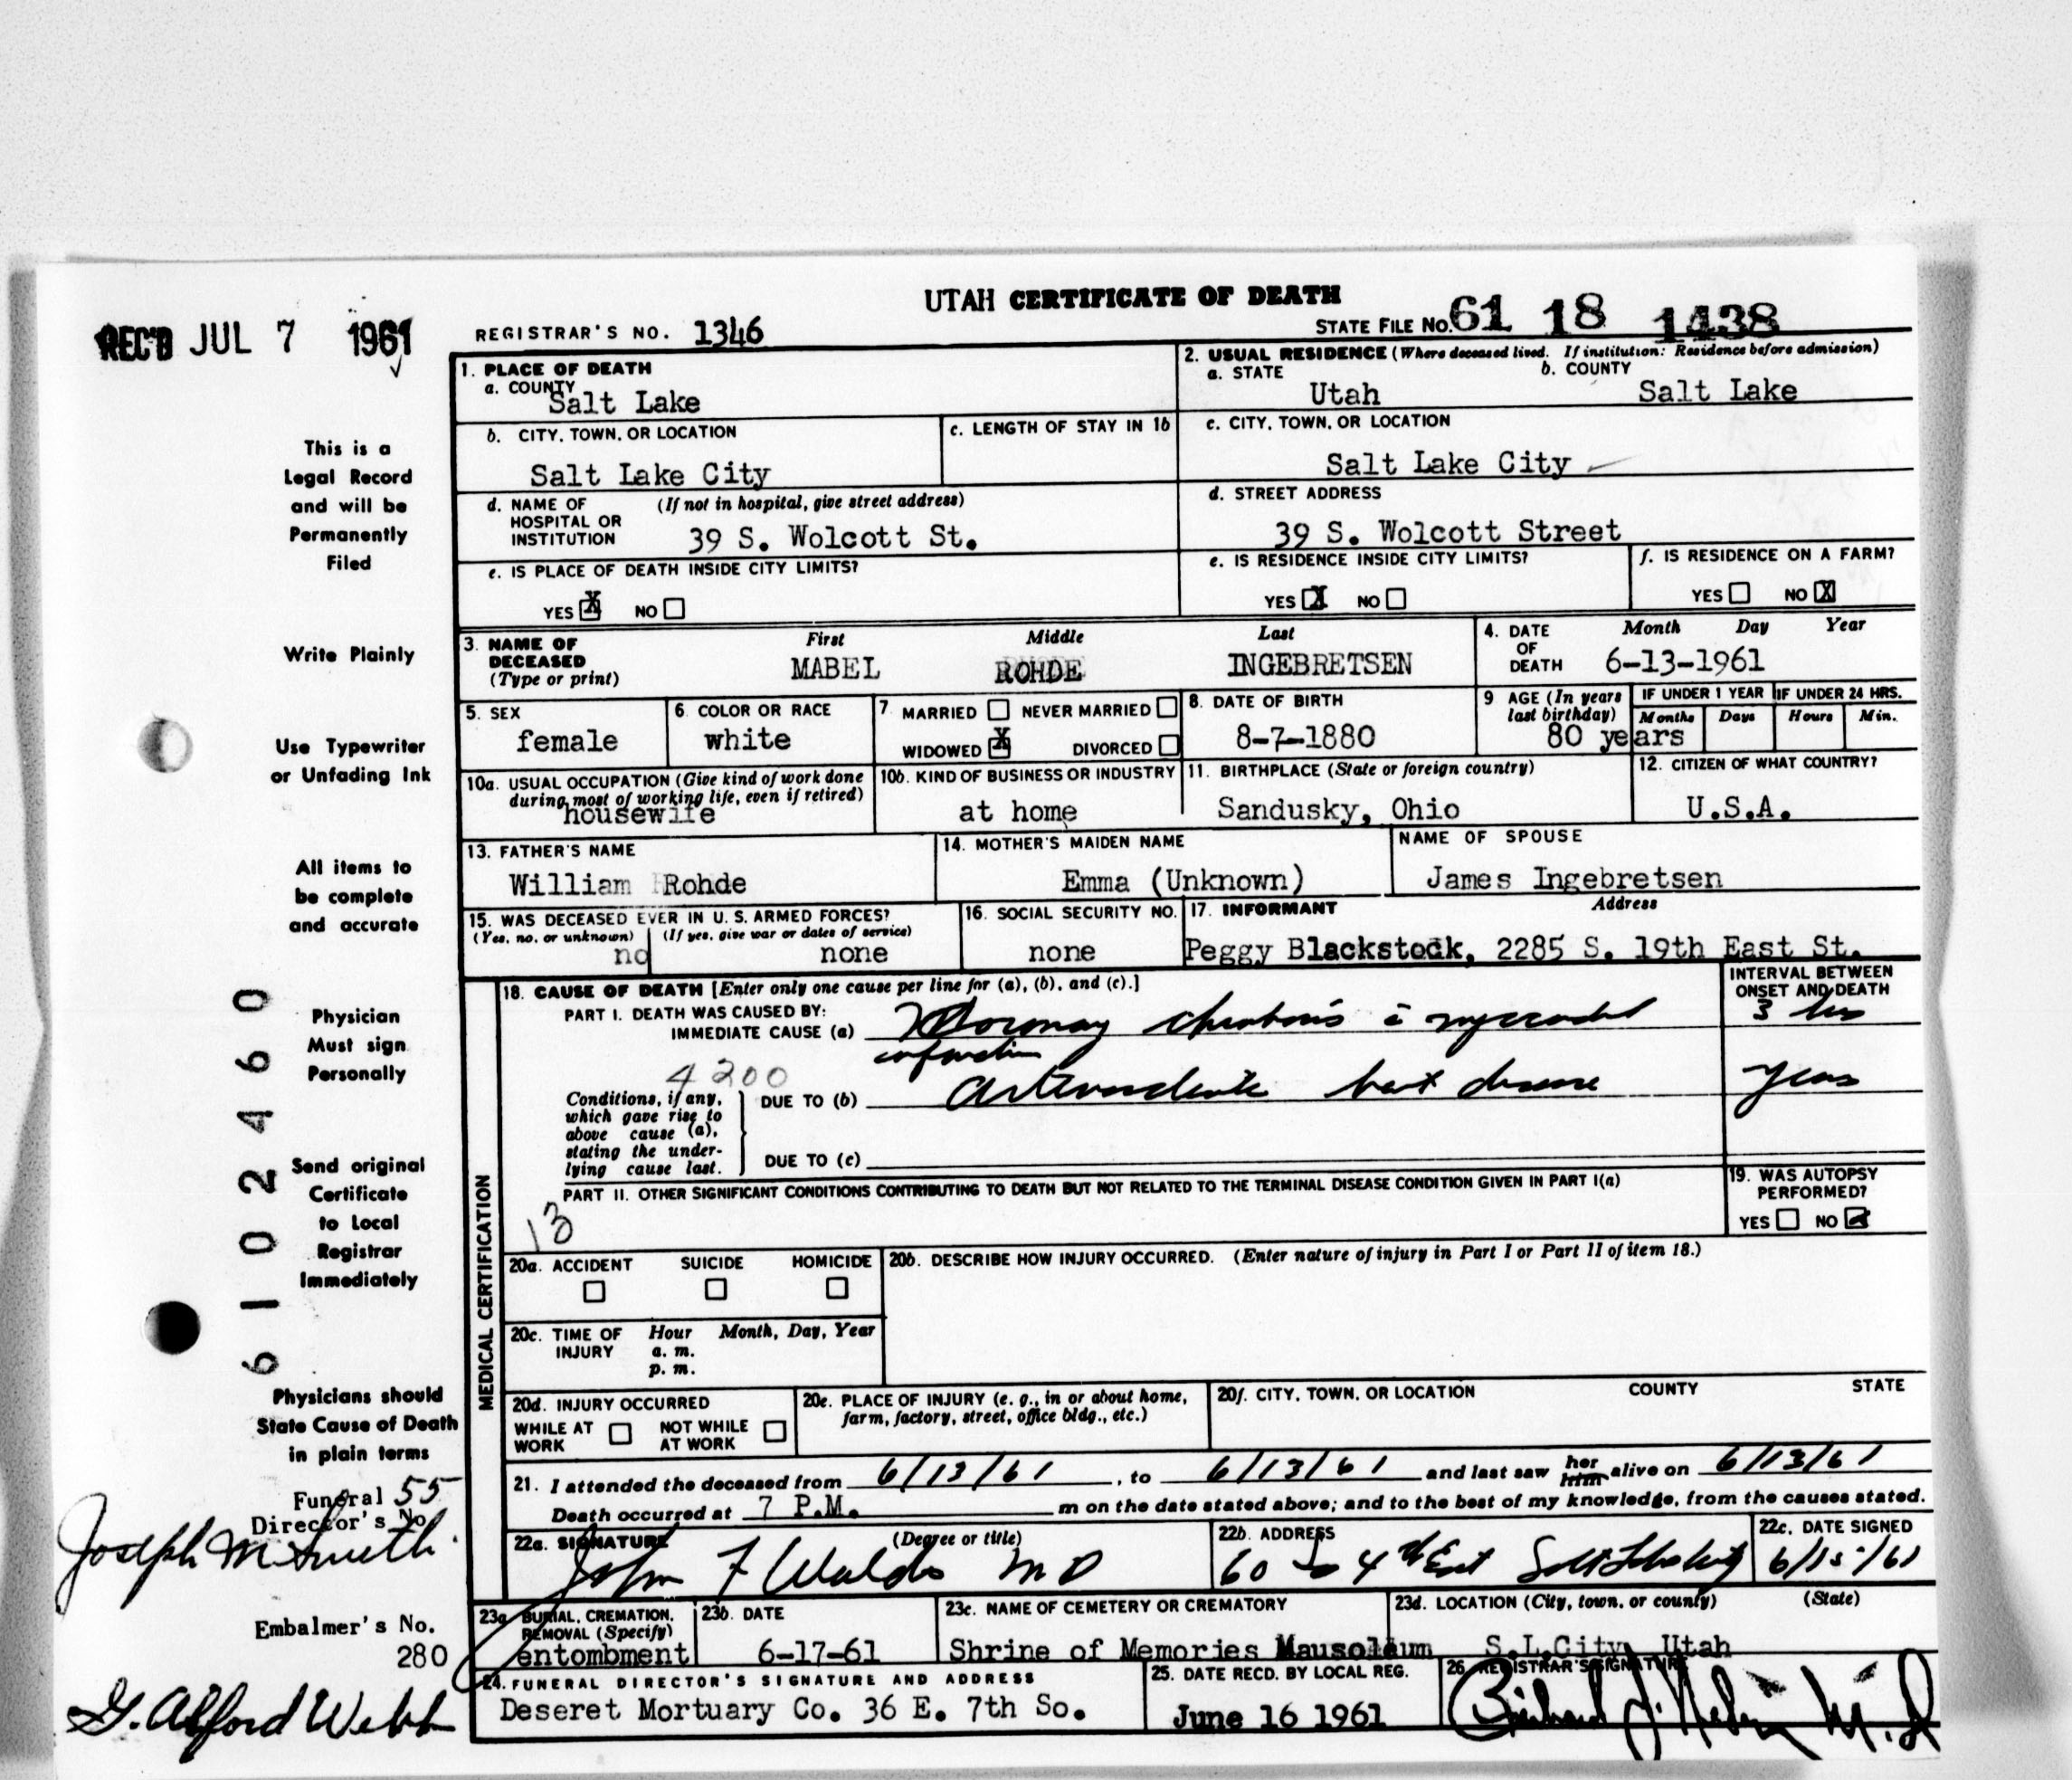 UTAH CERTIFICATE OF DEATH
REC'D JUL 7 1961
REGISTRAR'S NO. 1346
STATE FILE NO. 61 18 1438
1. PLACE OF DEATH
a. COUNTY
Salt Lake
2. USUAL RESIDENCE (Where deceased lived. If institution: Residence before admission)
a. STATE b. COUNTY
Utah Salt Lake
b. CITY, TOWN, OR LOCATION
Salt Lake City
c. LENGTH OF STAY IN 1b
c. CITY, TOWN, OR LOCATION
Salt Lake City
d. NAME OF HOSPITAL OR INSTITUTION (If not in hospital, give street address)
39 S. Wolcott St.
d. STREET ADDRESS
39 S. Wolcott Street
e. IS PLACE OF DEATH INSIDE CITY LIMITS?
YES X NO
e. IS RESIDENCE INSIDE CITY LIMITS?
YES X NO
f. IS RESIDENCE ON A FARM?
YES NO X
3. NAME OF DECEASED (Type or print)
First Middle Last
MABEL ROHDE INGEBRETSEN
4. DATE OF DEATH
Month Day Year
6-13-1961
5. SEX
female
6. COLOR OR RACE
white
7. MARRIED NEVER MARRIED
WIDOWED X DIVORCED
8. DATE OF BIRTH
8-7-1880
9 AGE (In years last birthday)
80 years
IF UNDER 1 YEAR
Months Days
IF UNDER 24 HRS.
Hours Min.
10a. USUAL OCCUPATION (Give kind of work done during most of working life, even if retired)
housewife
10b. KIND OF BUSINESS OR INDUSTRY
at home
11. BIRTHPLACE (State or foreign country)
Sandusky, Ohio
12. CITIZEN OF WHAT COUNTRY?
U.S.A.
13. FATHER'S NAME
William Rohde
14. MOTHER'S MAIDEN NAME
Emma (Unknown)
NAME OF SPOUSE
James Ingebretsen
15. WAS DECEASED EVER IN U. S. ARMED FORCES?
(Yes, no, or unknown) (If yes, give war or dates of service)
no none
16. SOCIAL SECURITY NO.
none
17. INFORMANT Address
Peggy Blackstock, 2285 S. 19th East St.
MEDICAL CERTIFICATION
18. CAUSE OF DEATH [Enter only one cause per line for (a), (b), and (c).]
INTERVAL BETWEEN ONSET AND DEATH
PART I. DEATH WAS CAUSED BY:
IMMEDIATE CAUSE (a) 3 hrs
infarction
4200
Conditions, if any, which gave rise to above cause (a), stating the underlying cause last.
DUE TO (b) heart disease years
DUE TO (c)
PART II. OTHER SIGNIFICANT CONDITIONS CONTRIBUTING TO DEATH BUT NOT RELATED TO THE TERMINAL DISEASE CONDITION GIVEN IN PART I(a)
13
19. WAS AUTOPSY PERFORMED?
YES NO
20a. ACCIDENT SUICIDE HOMICIDE
20b. DESCRIBE HOW INJURY OCCURRED. (Enter nature of injury in Part I or Part II of item 18.)
20c. TIME OF INJURY Hour Month, Day, Year
a. m.
p. m.
20d. INJURY OCCURRED
WHILE AT WORK NOT WHILE AT WORK
20e. PLACE OF INJURY (e. g., in or about home, farm, factory, street, office bldg., etc.)
20f. CITY, TOWN, OR LOCATION COUNTY STATE
21. I attended the deceased from 6/13/61, to 6/13/61 and last saw her him alive on 6/13/61
Death occurred at 7 P.M. m on the date stated above; and to the best of my knowledge, from the causes stated.
22a. SIGNATURE (Degree or title)
John F Waldo MD
22b. ADDRESS
60 So 4th East Salt Lake City
22c. DATE SIGNED
6/15/61
23a BURIAL, CREMATION, REMOVAL (Specify)
entombment
23b. DATE
6-17-61
23c. NAME OF CEMETERY OR CREMATORY
Shrine of Memories Mausoleum
23d. LOCATION (City, town, or county) (State)
S.L.City, Utah
24. FUNERAL DIRECTOR'S SIGNATURE AND ADDRESS
Deseret Mortuary Co. 36 E. 7th So.
25. DATE RECD. BY LOCAL REG.
June 16 1961
26 REGISTRAR'S SIGNATURE
M.D
This is a
Legal Record
and will be
Permanently
Filed
Write Plainly
Use Typewriter
or Unfading Ink
All items to
be complete
and accurate
Physician
Must sign
Personally
Send original
Certificate
to Local
Registrar
Immediately
Physicians should
State Cause of Death
in plain terms
61 02460
Funeral 55
Director's No.
Joseph M Smith
Embalmer's No.
280
G. Alford Webb